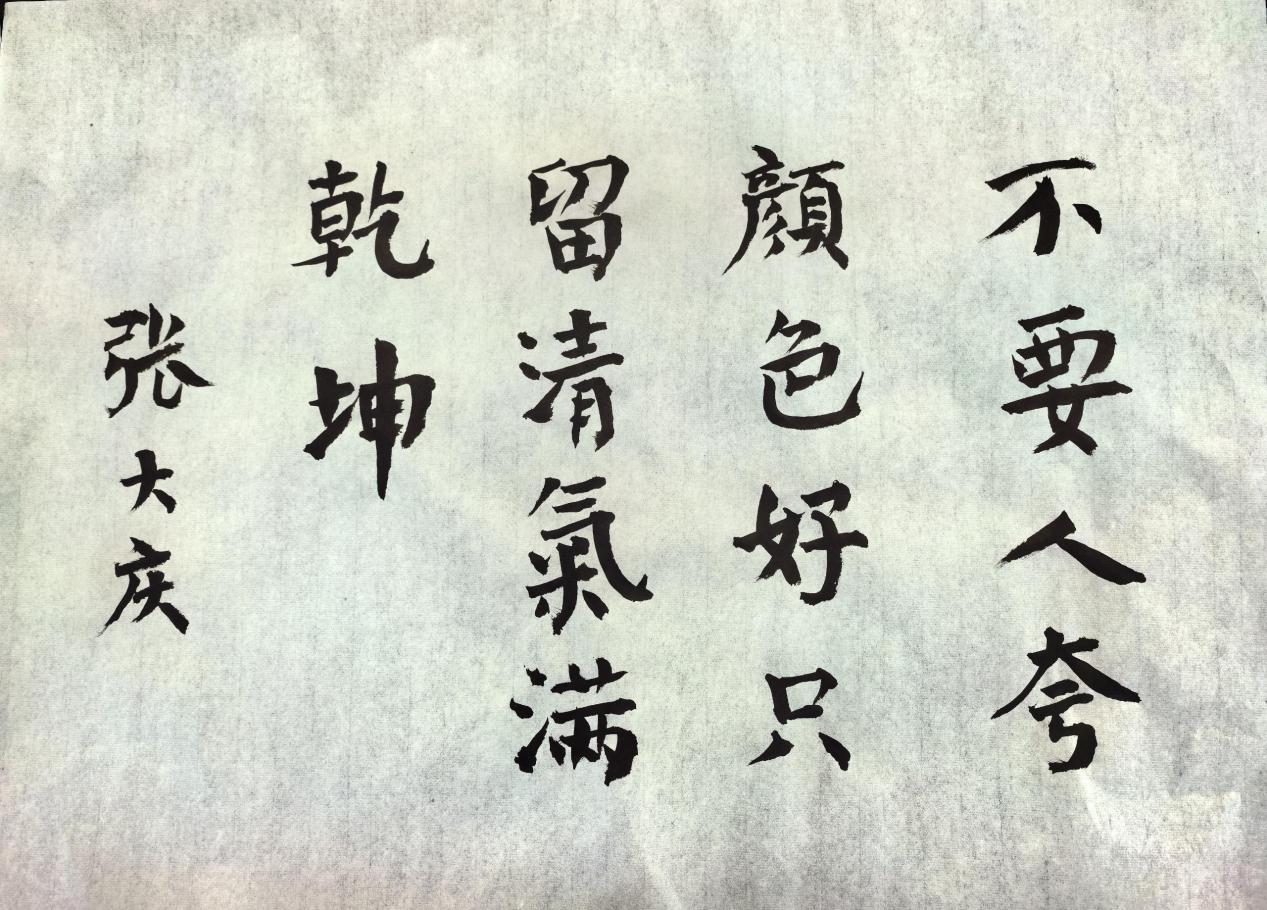 不要人夸
顔色好只
留清氣满
乾坤
张大庆